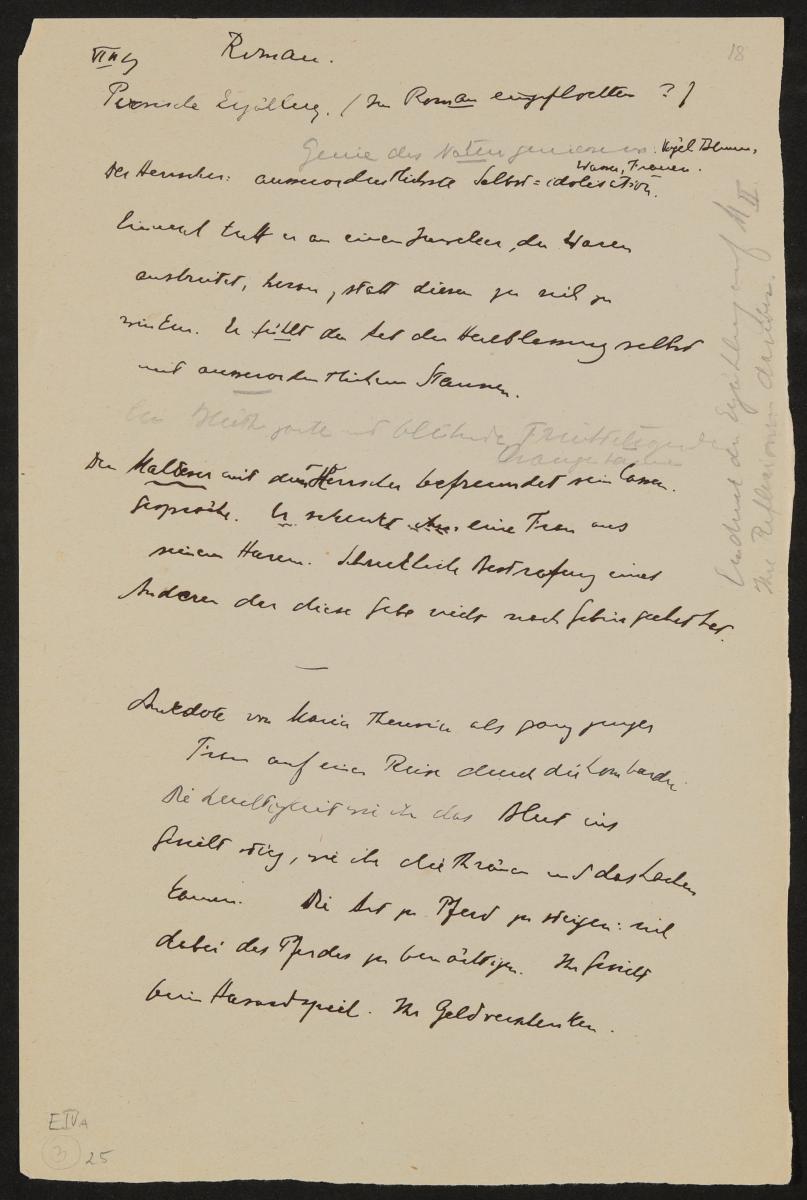 VI 19
Roman.
18
Persische Erzählung. (Im Roman eingeflochten ?)
Genie des Naturgeniessens: Vögel Blumen,
Wasser, Frauen.
Der Herrscher: ausserordentlichste Selbst=idolisation.
Einmal trifft er an einen Juwelier, der Waren
ausbreitet, heran, statt diesen zu sich zu
winken. Er fühlt den Act der Herablassung selbst
mit ausserordentlichem Staunen.
Ein garten mit blühenden
Orangebäumen
Den Malteser mit dem Herrscher befreundet sein lassen.
Gespräche. Er schenkt ihm eine Frau aus
seinem Harem. Schreckliche Bestrafung eines
Anderen der diese Gabe nicht nach Gebühr geehrt hat.
Eindruck der Erzählung auf M II.
Ihre Reflexionen darüber.
—
Anekdote von Maria Theresia als ganz junger
Frau auf einer Reise durch die Lombardei.
Die Leichtigkeit wie ihr das Blut ins
Gesicht stieg, wie ihr die Thränen und das Lachen
kamen. Die Art zu Pferd zu steigen: sich
dabei des Pferdes zu bemächtigen. Ihr Gesicht
beim Hasardspiel. Ihr Geldverschenken.
E IV A
3 25